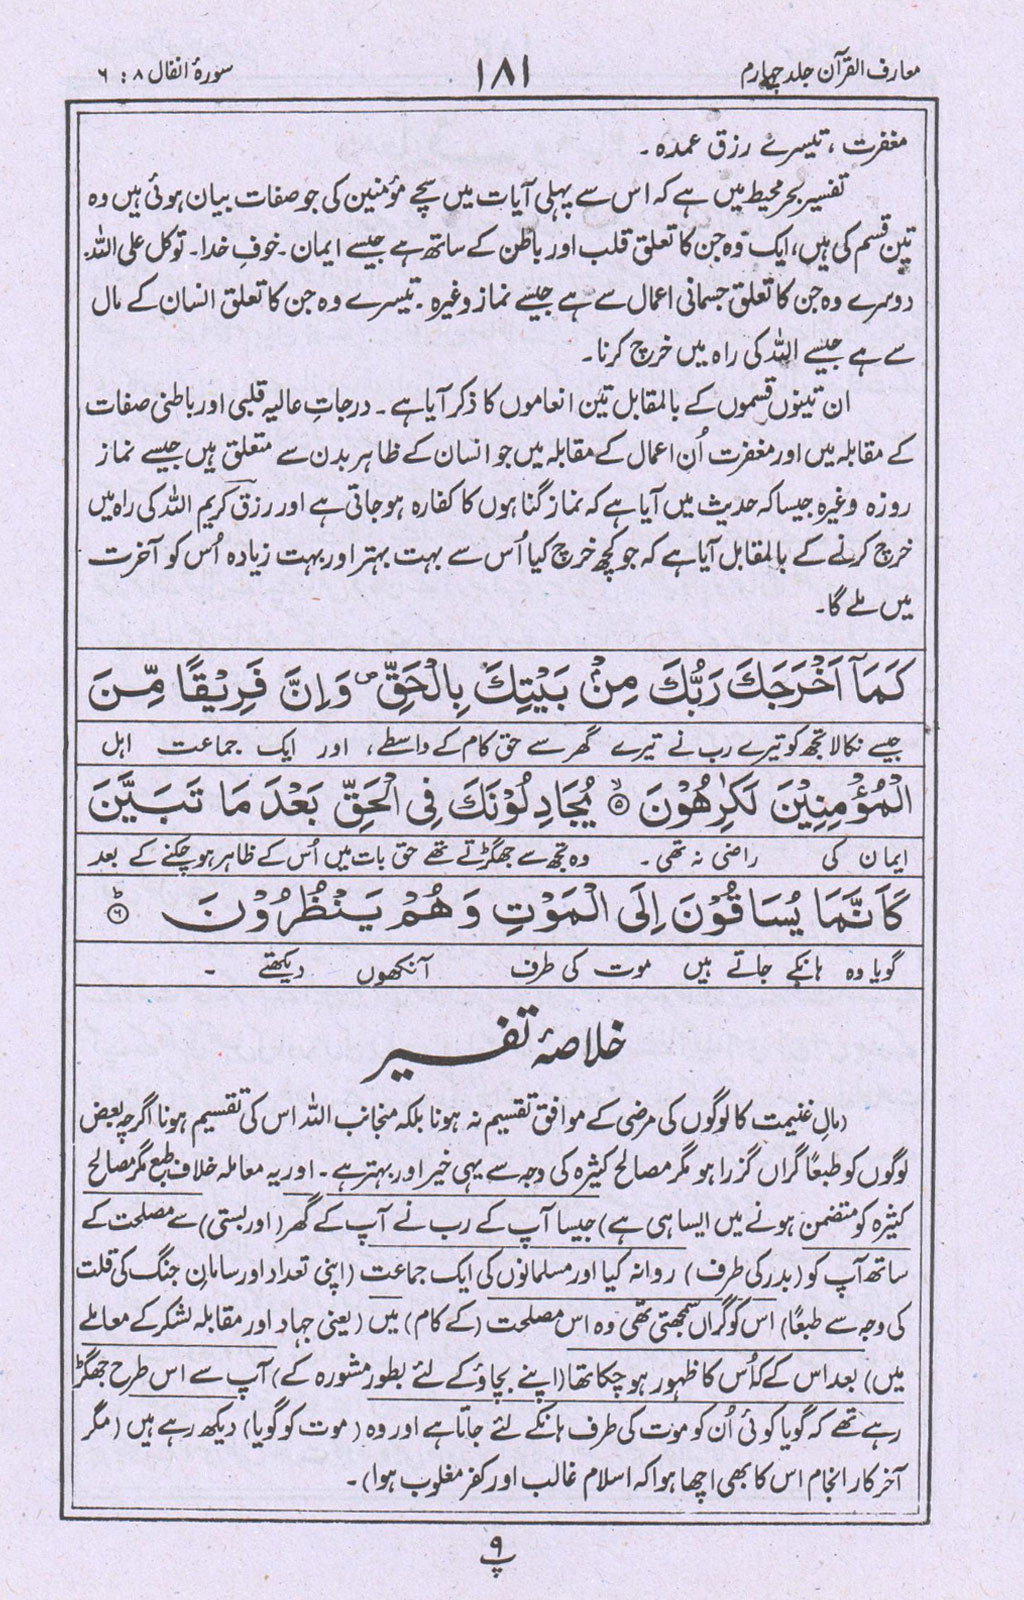 معارف القرآن جلد چہارم
۱۸۱
سورۂ انفال ۸ : ۶
مغفرت ، تیسرے رزق عمدہ ۔
تفسیر بحر محیط میں ہے کہ اس سے پہلی آیات میں سچے مؤمنین کی جو صفات بیان ہوئی ہیں وہ
تین قسم کی ہیں، ایک وہ جن کا تعلق قلب اور باطن کے ساتھ ہے جیسے ایمان ۔ خوفِ خدا ۔ توکل علی اللہ۔
دوسرے وہ جن کا تعلق جسمانی اعمال سے ہے جیسے نماز وغیرہ ۔ تیسرے وہ جن کا تعلق انسان کے مال
سے ہے جیسے اللہ کی راہ میں خرچ کرنا ۔
ان تینوں قسموں کے بالمقابل تین انعاموں کا ذکر آیا ہے ۔ درجاتِ عالیہ قلبی اور باطنی صفات
کے مقابلہ میں اور مغفرت اُن اعمال کے مقابلہ میں جو انسان کے ظاہر بدن سے متعلق ہیں جیسے نماز
روزہ وغیرہ جیسا کہ حدیث میں آیا ہے کہ نماز گناہوں کا کفارہ ہو جاتی ہے اور رزق کریم اللہ کی راہ میں
خرچ کرنے کے بالمقابل آیا ہے کہ جو کچھ خرچ کیا اُس سے بہت بہتر اور بہت زیادہ اُس کو آخرت
میں ملے گا۔
كَمَآ اَخْرَجَكَ رَبُّكَ مِنْۢ بَيْتِكَ بِالْحَقِّ ۖ وَاِنَّ فَرِيْقًا مِّنَ
جیسے نکالا تجھ کو تیرے رب نے تیرے گھر سے حق کام کے واسطے، اور ایک جماعت اہل
الْمُؤْمِنِيْنَ لَكٰرِهُوْنَ ۙ۵ يُجَادِلُوْنَكَ فِي الْحَقِّ بَعْدَ مَا تَبَيَّنَ
ایمان کی راضی نہ تھی ۔ وہ تجھ سے جھگڑتے تھے حق بات میں اُس کے ظاہر ہو چکنے کے بعد
كَاَنَّمَا يُسَاقُوْنَ اِلَى الْمَوْتِ وَهُمْ يَنْظُرُوْنَ ؕ۶
گویا وہ ہانکے جاتے ہیں موت کی طرف آنکھوں دیکھتے ۔
خلاصۂ تفسیر
(مالِ غنیمت کا لوگوں کی مرضی کے موافق تقسیم نہ ہونا بلکہ منجانب اللہ اس کی تقسیم ہونا اگرچہ بعض
لوگوں کو طبعًا گراں گزرا ہو مگر مصالح کثیرہ کی وجہ سے یہی خیر اور بہتر ہے ۔ اور یہ معاملہ خلاف طبع مگر مصالح
کثیرہ کو متضمن ہونے میں ایسا ہی ہے) جیسا آپ کے رب نے آپ کے گھر (اور بستی) سے مصلحت کے
ساتھ آپ کو (بدر کی طرف) روانہ کیا اور مسلمانوں کی ایک جماعت (اپنی تعداد اور سامانِ جنگ کی قلت
کی وجہ سے طبعًا) اس کو گراں سمجھتی تھی وہ اس مصلحت (کے کام) میں (یعنی جہاد اور مقابلہ لشکر کے معاملے
میں) بعد اس کے کہ اُس کا ظہور ہو چکا تھا (اپنے بچاؤ کے لئے بطور مشورہ کے) آپ سے اس طرح جھگڑ
رہے تھے کہ گویا کوئی اُن کو موت کی طرف ہانکے لئے جاتا ہے اور وہ (موت کو گویا) دیکھ رہے ہیں (مگر
آخر کار انجام اس کا بھی اچھا ہوا کہ اسلام غالب اور کفر مغلوب ہوا) ۔
۹
پ